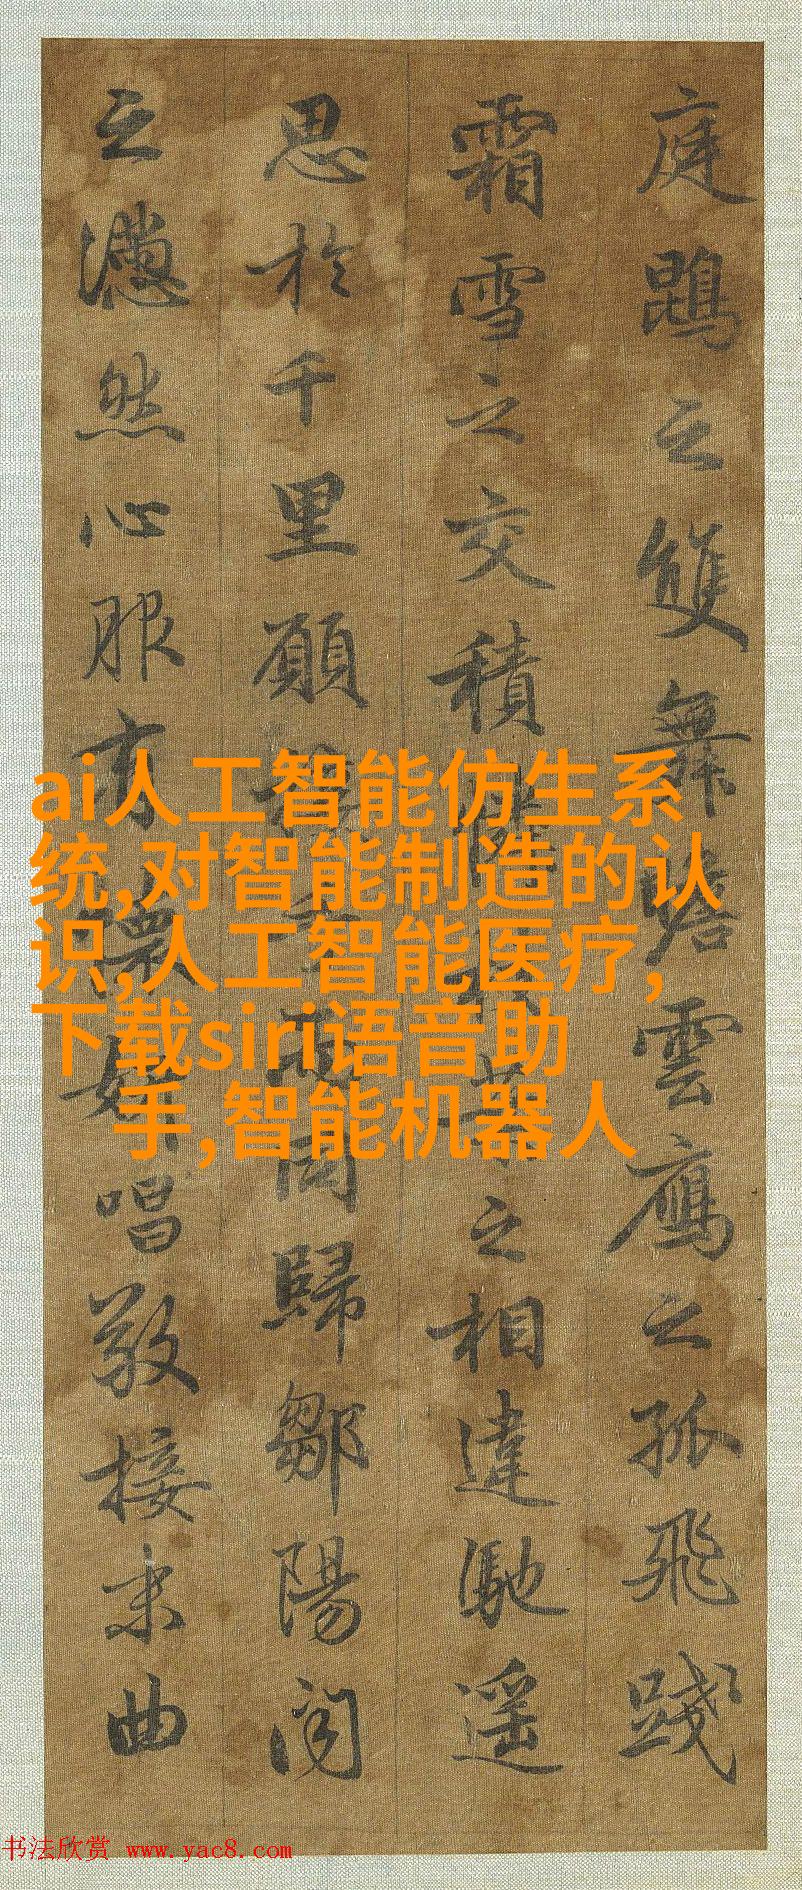 庭鵾之雙舞瞻雲鴈之孤飛踐
霜雪之交積憐枝葉之相違馳遥
思於千里願接手而同歸鄒陽聞
之懣然心服有懷妍唱敬接末曲
ai人工智能仿生系
统,对智能制造的认
识,人工智能医疗,
下载siri语音助
手,智能机器人
书法欣赏 www.yac8.com